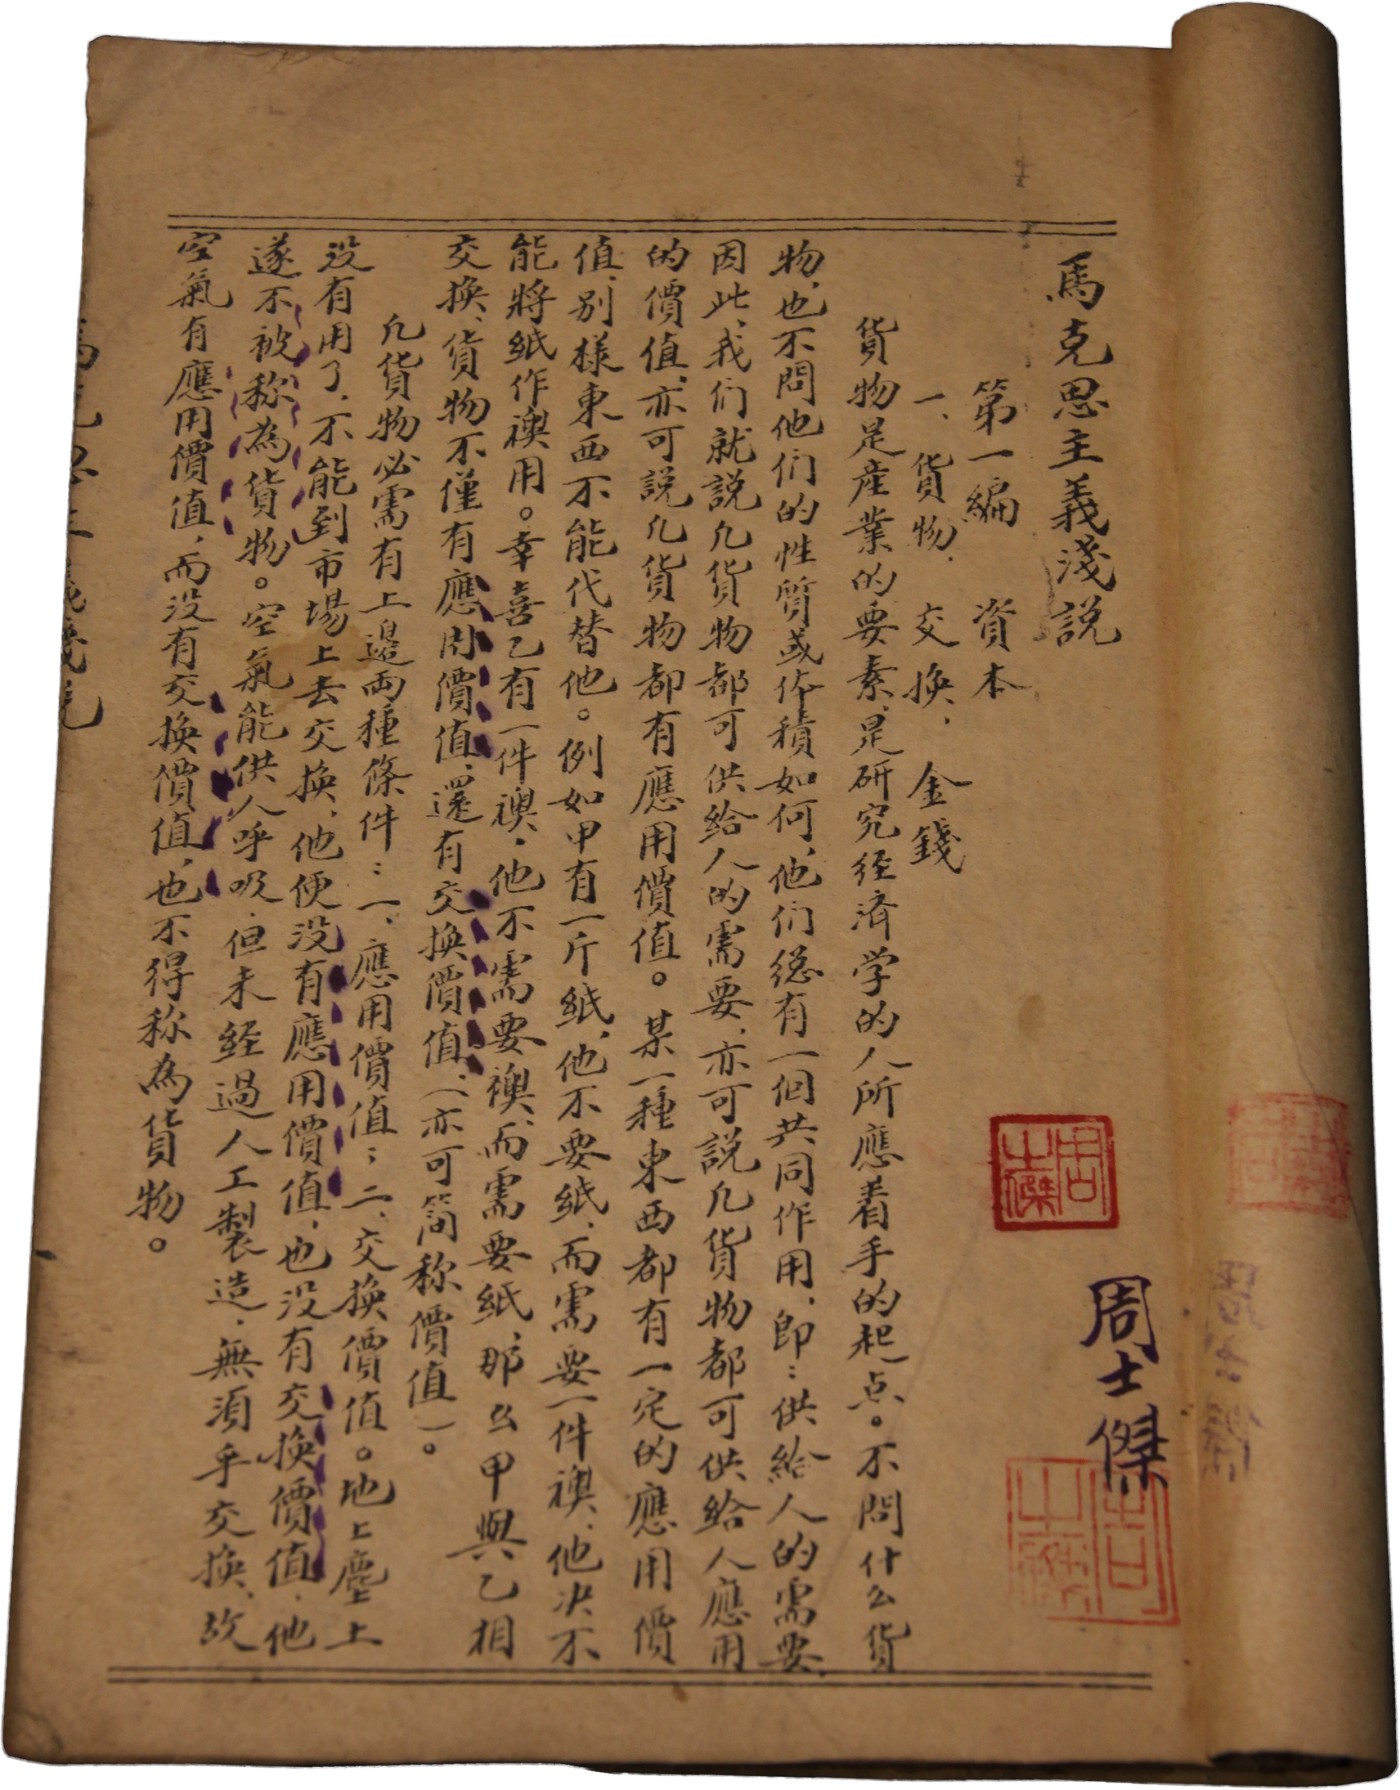 馬克思主義淺説
第一編 資本
一、貨物、交換、金錢
貨物是産業的要素,是研究経済学的人所應着手的起点。不問什么貨
物,也不問他们的性質或体積如何,他们總有一個共同作用,即:供給人的需要,
因此,我们就説凡貨物都可供給人的需要,亦可説凡貨物都可供給人應用
的價值,亦可説凡貨物都有應用價值。某一種東西都有一定的應用價
值,别樣東西不能代替他。例如甲有一斤紙,他不要紙,而需要一件襖,他决不
能將紙作襖用。幸喜乙有一件襖,他不需要襖,而需要紙,那么甲與乙相
交換,貨物不僅有應用價值,還有交換價值,(亦可简称價值)。
凡貨物必需有上邉両種條件:一、應用價值;二、交換價值。地上塵土
没有用了,不能到市場上去交換,他便没有應用價值,也没有交換價值,他
遂不被称為貨物。空氣能供人呼吸,但未経過人工製造,無須乎交換,故
空氣有應用價值,而没有交換價值,也不得称為貨物。
周士傑
周士傑
周士傑